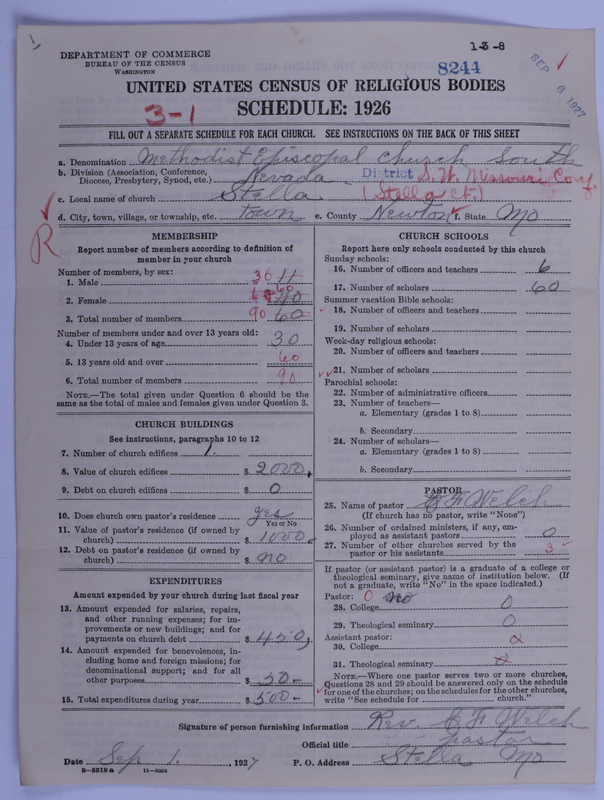 1-3-8
DEPARTMENT OF COMMERCE
BUREAU OF THE CENSUS
WASHINGTON
8244
SEP 6 1927
UNITED STATES CENSUS OF RELIGIOUS BODIES
3-1
SCHEDULE: 1926
FILL OUT A SEPARATE SCHEDULE FOR EACH CHURCH. SEE INSTRUCTIONS ON THE BACK OF THIS SHEET
a. Denomination Methodist Episcopal Church South
b. Division (Association, Conference, Diocese, Presbytery, Synod, etc.) Nevada District S.W. Missouri Conf.
c. Local name of church Stella (Stella ct.)
d. City, town, village, or township, etc. town e. County Newton f. State Mo
R
MEMBERSHIP
Report number of members according to definition of member in your church
Number of members, by sex:
1. Male 30 11
2. Female 60 40
3. Total number of members 90 60
Number of members under and over 13 years old:
4. Under 13 years of age 30
5. 13 years old and over 60
6. Total number of members 90
NOTE.—The total given under Question 6 should be the same as the total of males and females given under Question 3.
CHURCH BUILDINGS
See instructions, paragraphs 10 to 12
7. Number of church edifices 1.
8. Value of church edifices $ 2000.
9. Debt on church edifices $ 0
10. Does church own pastor's residence? yes
Yes or No
11. Value of pastor's residence (if owned by church) $ 1000
12. Debt on pastor's residence (if owned by church) $ no
EXPENDITURES
Amount expended by your church during last fiscal year
13. Amount expended for salaries, repairs, and other running expenses; for improvements or new buildings; and for payments on church debt $ 450
14. Amount expended for benevolences, including home and foreign missions; for denominational support; and for all other purposes $ 50-
15. Total expenditures during year $ 500-
CHURCH SCHOOLS
Report here only schools conducted by this church
Sunday schools:
16. Number of officers and teachers 6
17. Number of scholars 60
Summer vacation Bible schools:
18. Number of officers and teachers
19. Number of scholars
Week-day religious schools:
20. Number of officers and teachers
21. Number of scholars
Parochial schools:
22. Number of administrative officers
23. Number of teachers—
a. Elementary (grades 1 to 8)
b. Secondary
24. Number of scholars—
a. Elementary (grades 1 to 8)
b. Secondary
PASTOR
25. Name of pastor F Welch
(If church has no pastor, write "None")
26. Number of ordained ministers, if any, employed as assistant pastors 0
27. Number of other churches served by the pastor or his assistants 3
If pastor (or assistant pastor) is a graduate of a college or theological seminary, give name of institution below. (If not a graduate, write "No" in the space indicated.)
Pastor: 0 no
28. College 0
29. Theological seminary 0
Assistant pastor:
30. College
31. Theological seminary
NOTE.—Where one pastor serves two or more churches, Questions 28 and 29 should be answered only on the schedule for one of the churches; on the schedules for the other churches, write "See schedule for church."
Signature of person furnishing information Rev. F Welch
Official title pastor
Date Sep 1, 1927 P. O. Address Stella Mo
8-5518 a 11-9064